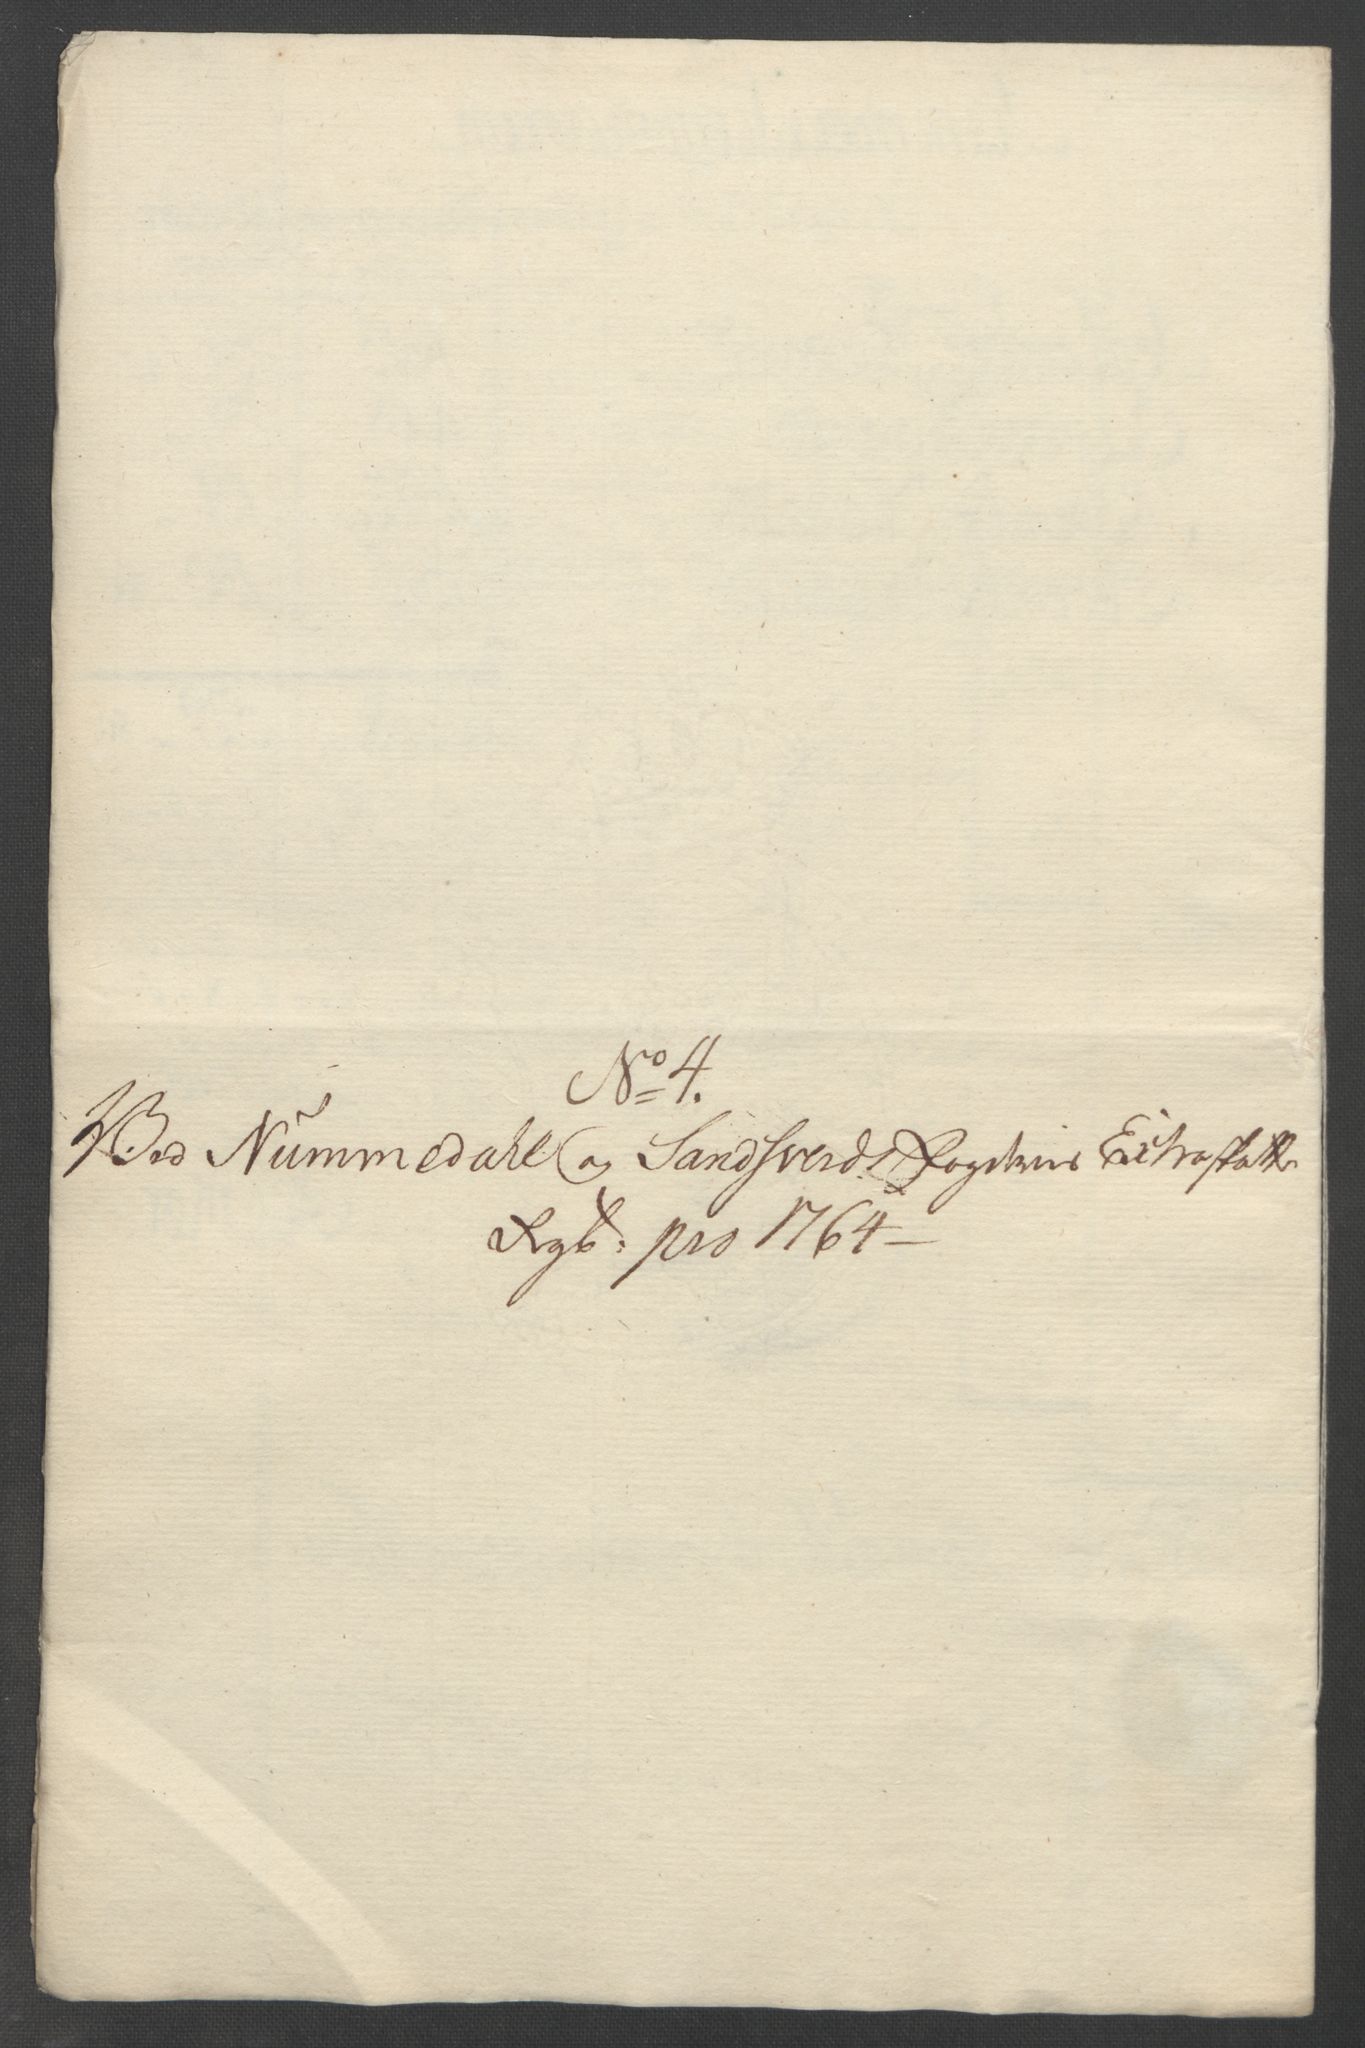 No 4.
Ved Nummedahl og Sandsverds Fogderies Extraskatts
Rgb: pro 1764 —